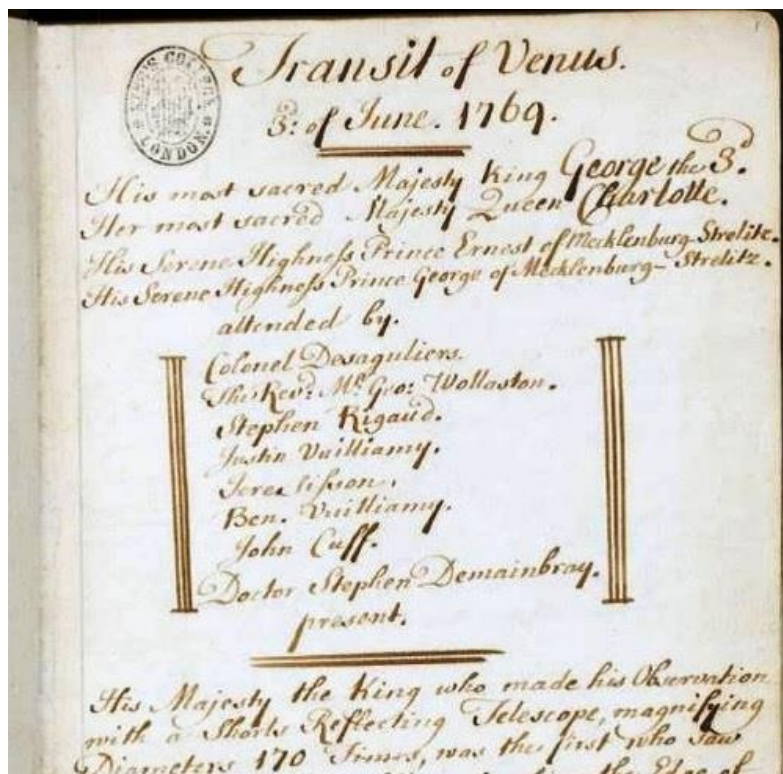 1
KING'S COLLEGE
LONDON
Transit of Venus.
3: of June. 1769.
His most sacred Majesty King George the 3.d
Her most sacred Majesty Queen Charlotte.
His Serene Highness Prince Ernest of Mecklenburg-Strelitz.
His Serene Highness Prince George of Mecklenburg-Strelitz.
attended by.
Colonel Desaguliers.
The Revd: Mr. Geo: Wollaston.
Stephen Rigaud.
Justin Vulliamy.
Ben. Vulliamy.
John Cuff.
Doctor Stephen Demainbray.
present.
His Majesty the King who made his Observation
with a Shorts Reflecting Telescope, magnifying
Diameters 170 Times, was the first who saw
the Edge of